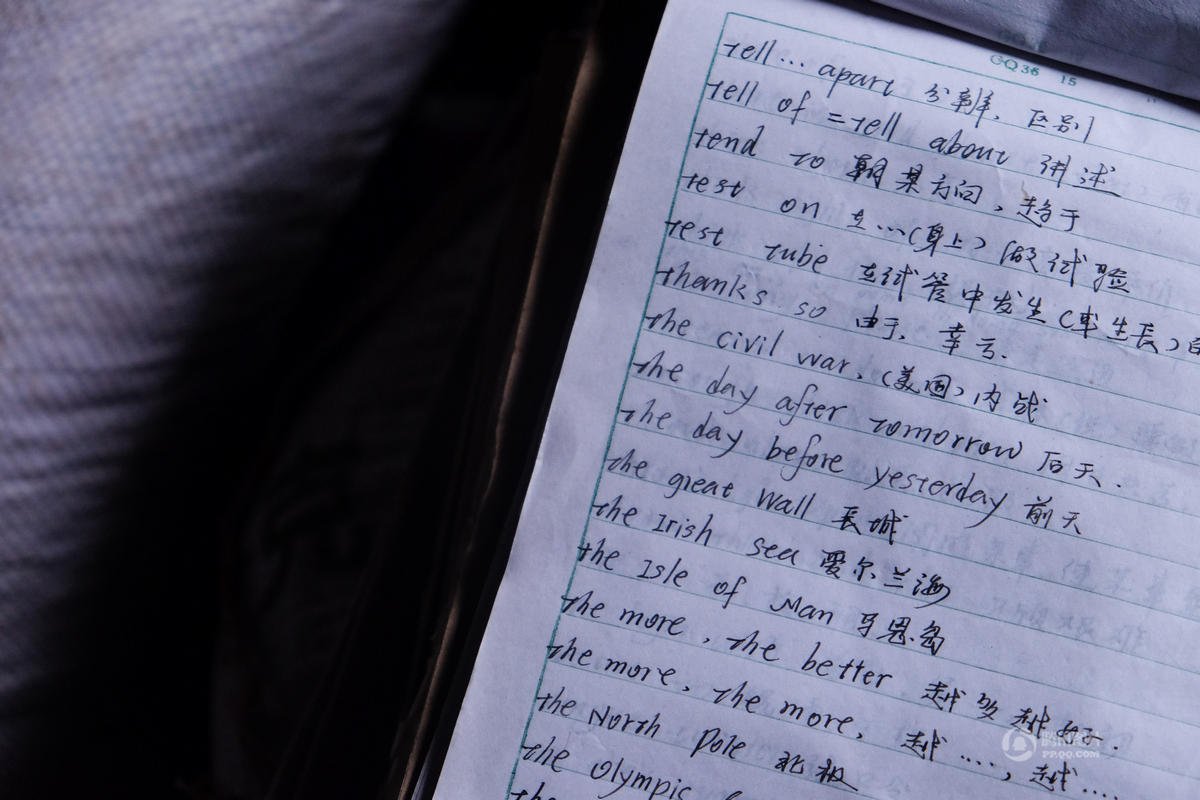 GQ36 15
tell... apart 分辨, 区别
tell of =tell about 讲述
tend to 朝某方向, 趋于
test on 在...(身上) 做试验
test tube 在试管中发生(或生長)
thanks so 由于, 幸亏.
the civil war, (美国) 内战
the day after tomorrow 后天.
the day before yesterday 前天
the great Wall 長城
the Irish sea 爱尔兰海
the Isle of Man 马恩岛
the more, the better 越多越好.
the more, the more, 越...., 越.....
the North Pole 北极
the Olympic
the
PP.QQ.COM